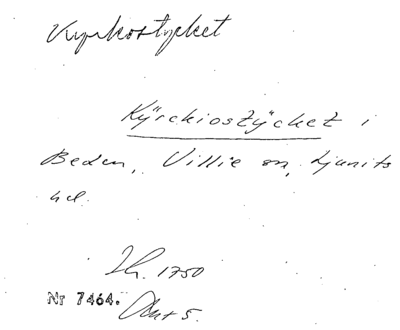 Kyrkostycket
Kÿrckiostÿcket i
Beden, Villie sn, Ljunits
hd.
Lh. 1750
Nr 7464. Akt 5.